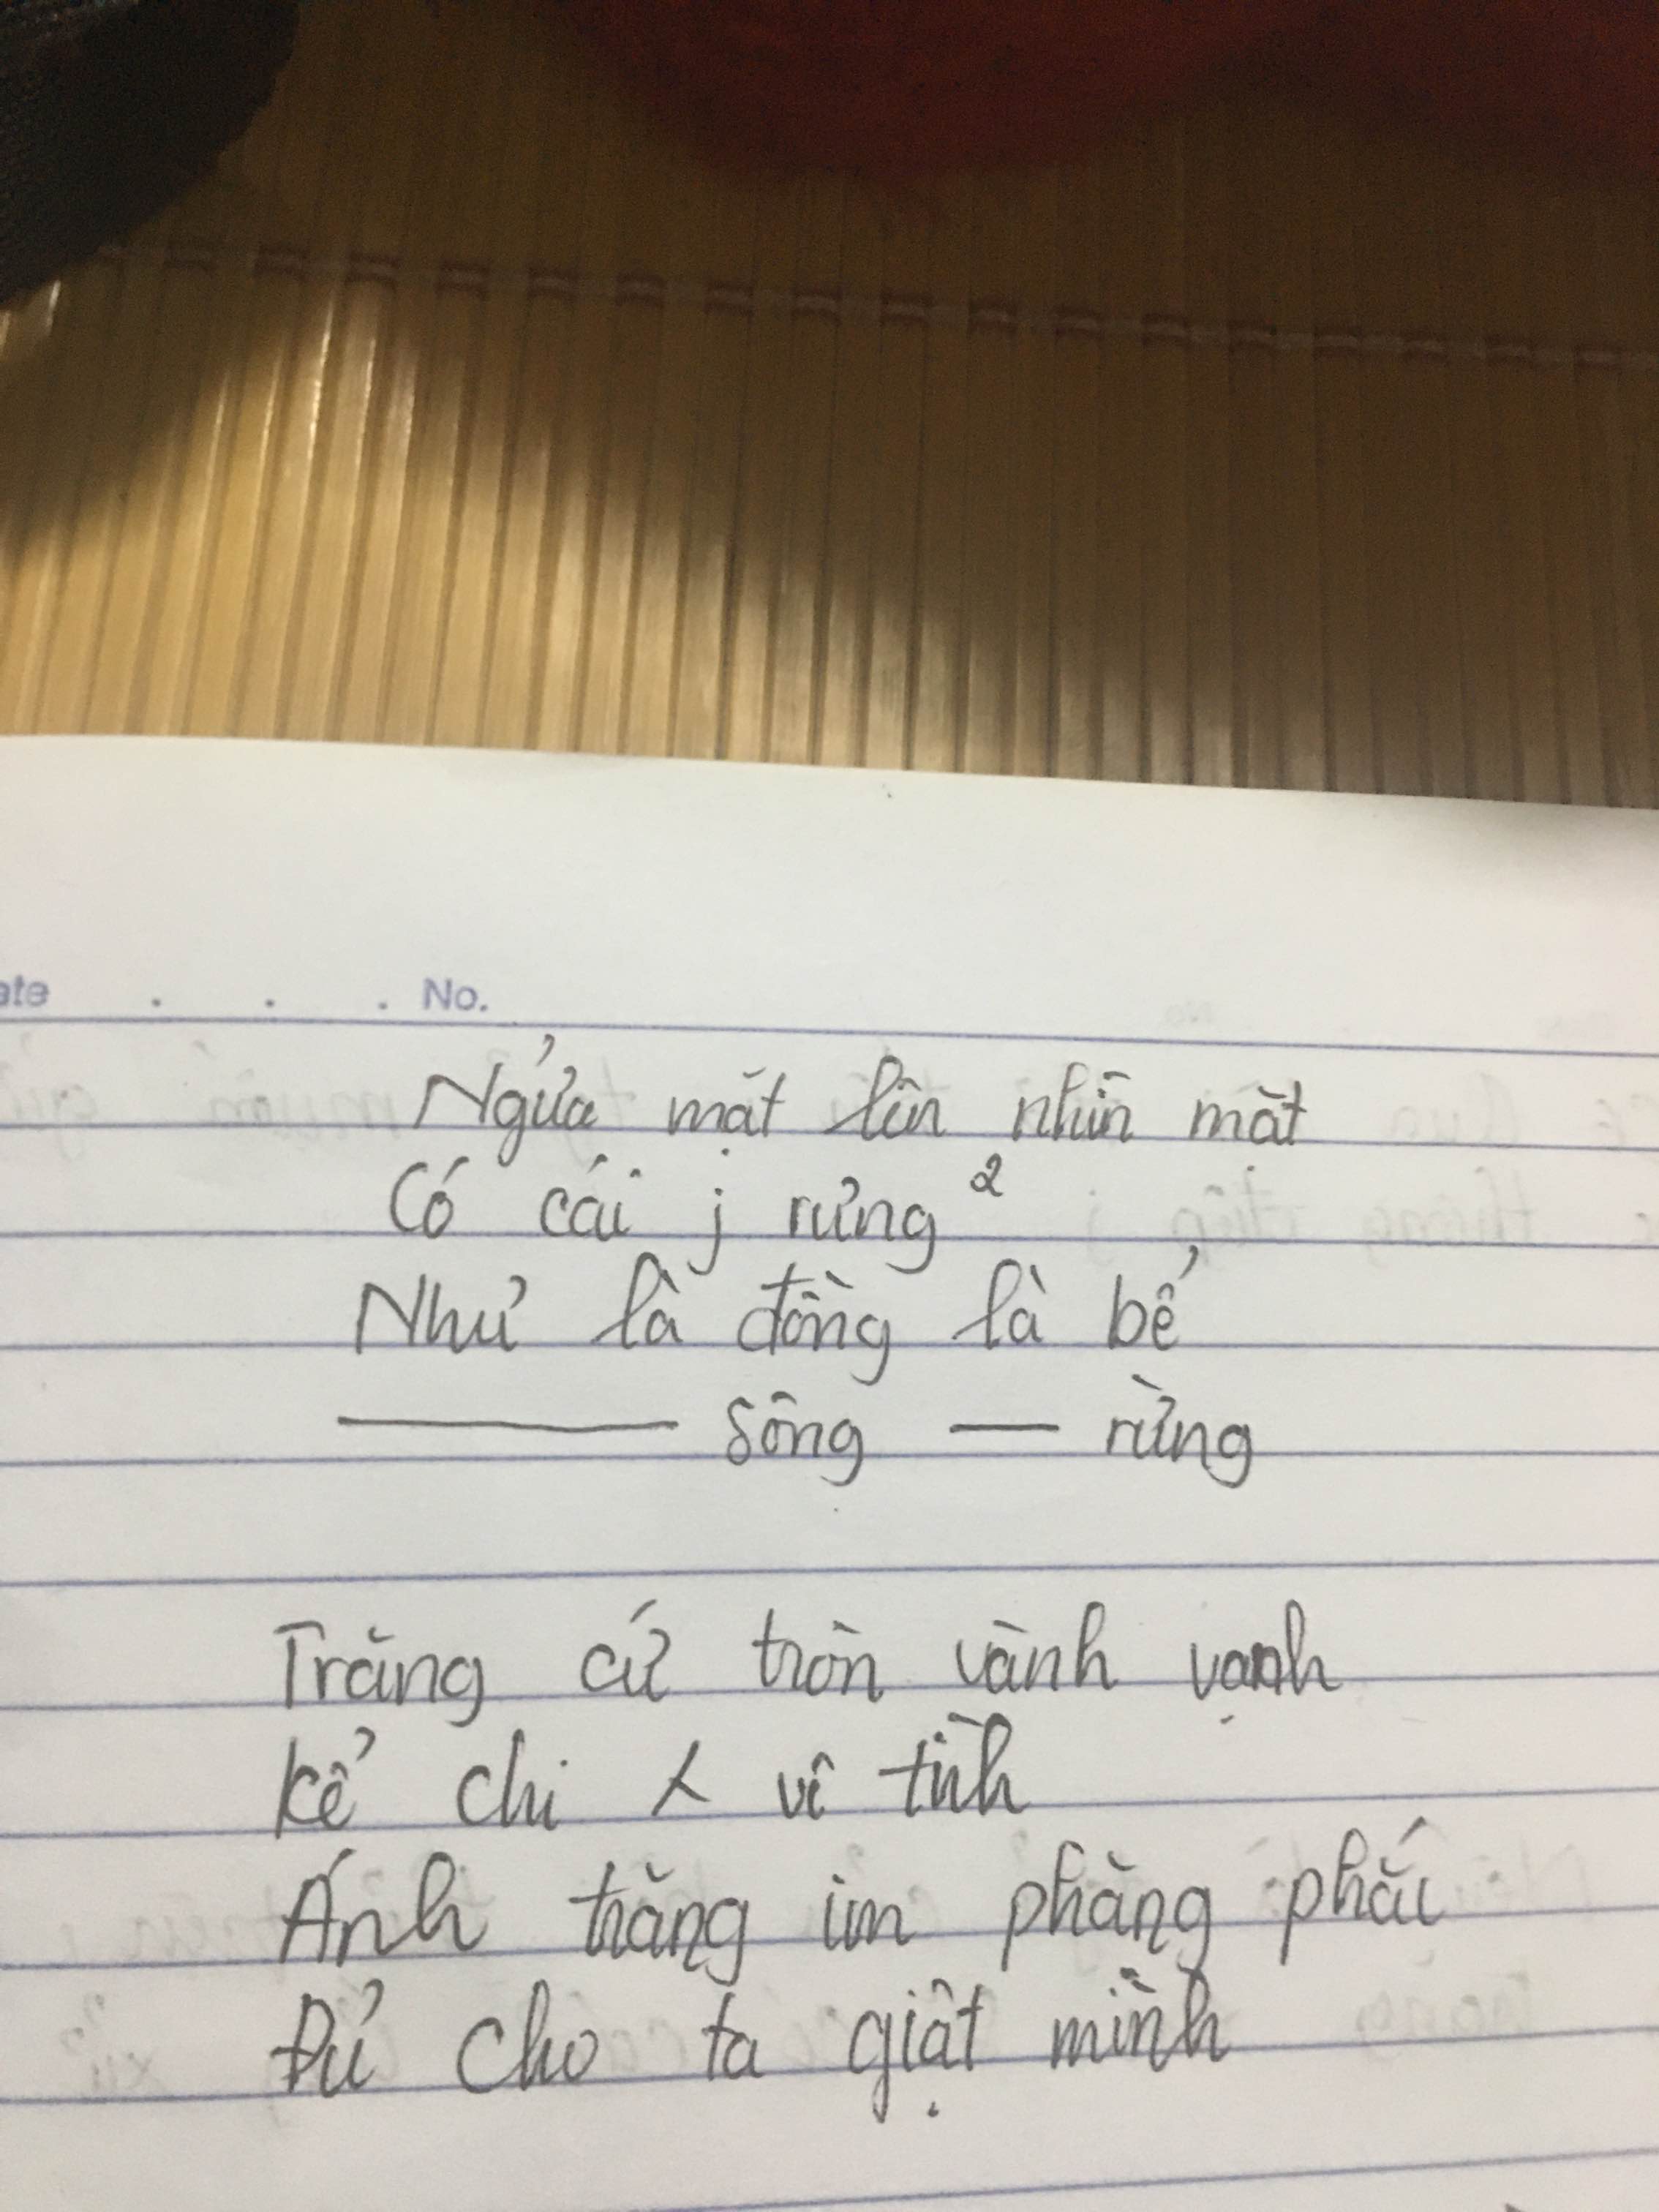 ate . . . No.
Ngửa mặt lên nhìn mặt
Có cái j rưng²
Như là đồng là bể
——— sông — rừng
Trăng cứ tròn vành vạnh
kể chi x vô tình
Ánh trăng im phăng phắc
Đủ cho ta giật mình